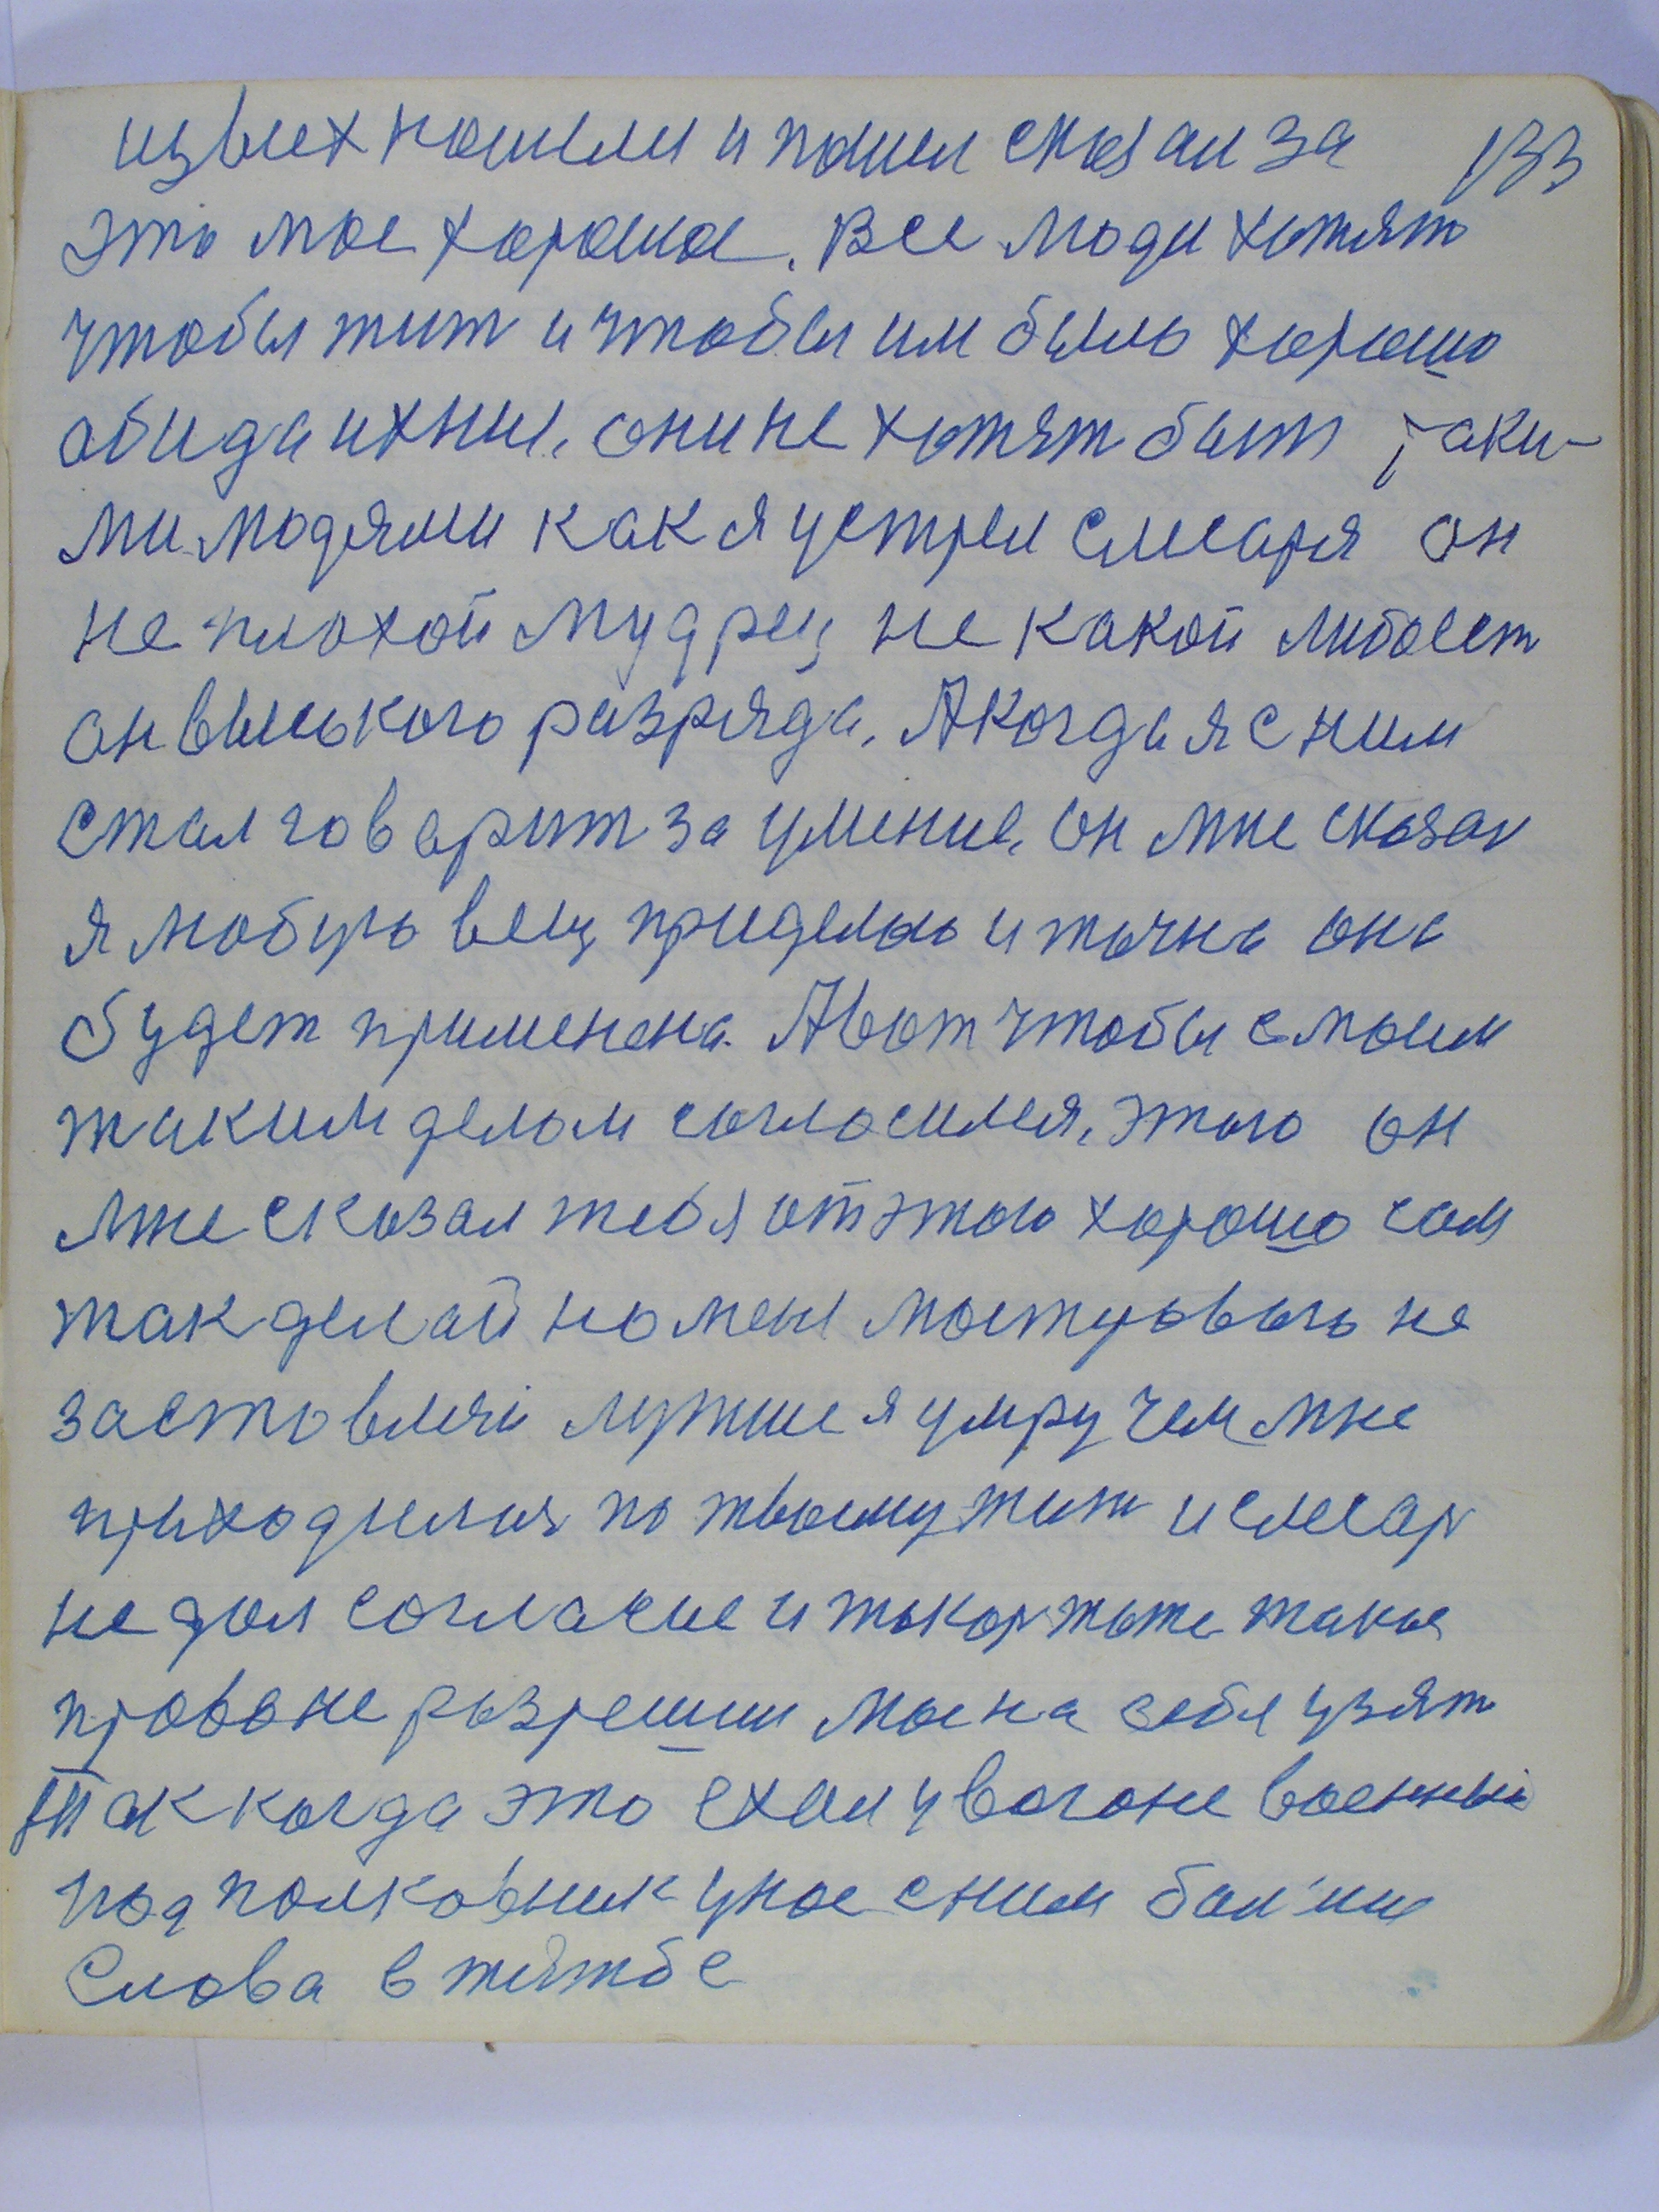 133
из всех нашел и пошел сказал за
это мое хорошое. Все люди хотят
чтобы жит и чтобы им было хорошо
обида ихние, они не хотят быт таки-
ми людями как я устрел слесаря он
не плохой мудрец не какой либо ест
он высокого разряда, А когда я с ним
стал говарит за умение, он мне сказал
я любую вещ приделаю и точна она
будет применена. А вот чтобы с моим
таким делом согласился, этого он
мне сказал тебя от этого хорошо сам
так делай но меня мастурового не
заставляй лутше я умру чем мне
приходился по твоему жит и слесар
не дал согласие и токар тоже такое
право не разрешил мое на себя узят
Так когда это ехал у вагоне военный
подполковник у нас с ним был'ши
слова в тяжбе